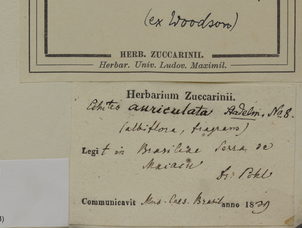 (ex Woodson)
HERB. ZUCCARINII.
Herbar. Univ. Ludov. Maximil.
Herbarium Zuccarinii.
Echites auriculata No 8.
(albiflora, fragrans)
Legit in Brasiliae Serra de
Dr. Pohl
Communicavit Mus. Caes. Brasil anno 1839